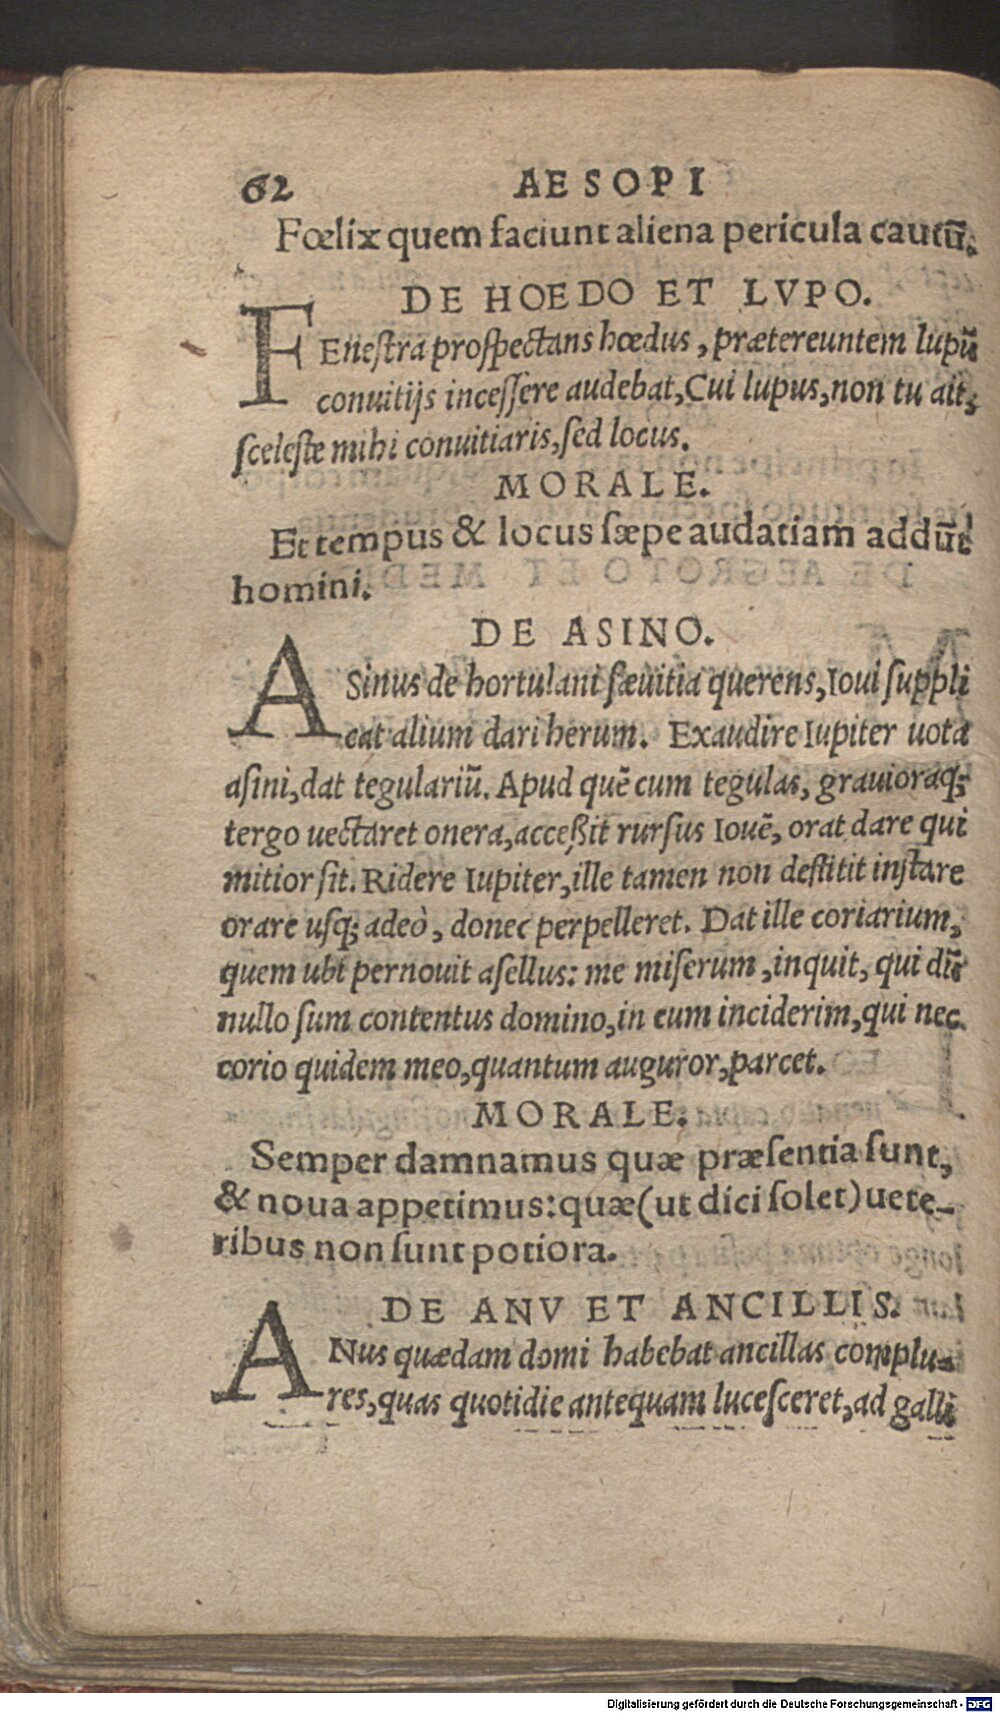 62 AESOPI
Fœlix quem faciunt aliena pericula cautū.
DE HOEDO ET LVPO.
FEnestra prospectans hœdus, prætereuntem lupū
conuitijs incessere audebat, Cui lupus, non tu ait,
sceleste mihi conuitiaris, sed locus.
MORALE.
Et tempus & locus sæpe audatiam addūt
homini.
DE ASINO.
ASinus de hortulani sæuitia querens, Ioui suppli
cat alium dari herum. Exaudire Iupiter uota
asini, dat tegulariū. Apud quē cum tegulas, grauioraq;
tergo uectaret onera, acceßit rursus Iouē, orat dare qui
mitior sit. Ridere Iupiter, ille tamen non destitit instare
orare usq; adeò, donec perpelleret. Dat ille coriarium,
quem ubi pernouit asellus: me miserum, inquit, qui dū
nullo sum contentus domino, in eum inciderim, qui nec
corio quidem meo, quantum auguror, parcet.
MORALE.
Semper damnamus quæ præsentia sunt,
& noua appetimus: quæ (ut dici solet) uete-
ribus non sunt potiora.
DE ANV ET ANCILLIS.
ANus quædam domi habebat ancillas complu-
res, quas quotidie antequam lucesceret, ad galli
Digitalisierung gefördert durch die Deutsche Forschungsgemeinschaft - DFG